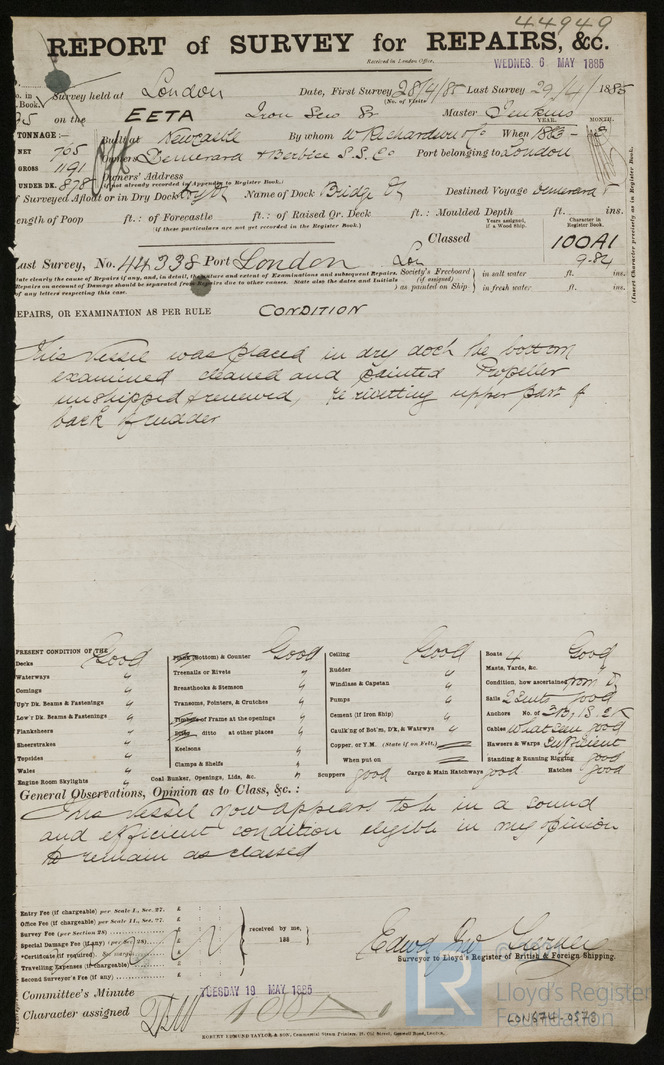 44949
REPORT of SURVEY for REPAIRS, &c.
Received in London Office,
WEDNES. 6 MAY 1885
No. in Survey held at London Date, First Survey 28/4/85 Last Survey 29/4/ 1885
Book. (No. of Visits)
95 on the EETA Iron Scw Sr Master Jenkins
TONNAGE:— Built at Newcastle By whom W Richardson & Co When 1883 - 9
YEAR. MONTH.
NET 765 Owners Demerara & Berbice S.S. Co Port belonging to London
GROSS 1191 Owners' Address
UNDER DK. 878 (if not already recorded in Appendix to Register Book.)
If Surveyed Afloat or in Dry Dock Dry Dk Name of Dock Bridge Destined Voyage Demerara
Length of Poop ft.: of Forecastle ft.: of Raised Qr. Deck ft.: Moulded Depth ft. ins.
(if these particulars are not yet recorded in the Register Book.)
Years assigned, if a Wood Ship. Character in Register Book.
Classed 100A1
Last Survey, No. 44338 Port London Lon 9.84
State clearly the cause of Repairs if any, and, in detail, the nature and extent of Examinations and subsequent Repairs.
Repairs on account of Damage should be separated from Repairs due to other causes. State also the dates and Initials
of any letters respecting this case.
Society's Freeboard (if assigned) as painted on Ship in salt water ft. ins.
in fresh water ft. ins.
(Insert Character precisely as in Register Book.
REPAIRS, OR EXAMINATION AS PER RULE CONDITION
This Vessel was placed in dry dock the bottom
examined cleaned and painted Propeller
unshipped & renewed, re rivetting upper part of
back of rudder
PRESENT CONDITION OF THE
Decks Good
Waterways "
Comings "
Up'r Dk. Beams & Fastenings "
Low'r Dk. Beams & Fastenings "
Planksheers "
Sheerstrakes "
Topsides "
Wales "
Engine Room Skylights "
Plank (Bottom) & Counter Good
Treenails or Rivets "
Breasthooks & Stemson "
Transoms, Pointers, & Crutches "
Timbers of Frame at the openings "
Ditto ditto at other places "
Keelsons "
Clamps & Shelfs "
Coal Bunker, Openings, Lids, &c. "
Ceiling Good
Rudder "
Windlass & Capstan "
Pumps "
Cement (if Iron Ship) "
Caulk'ng of Bot'm, D'k, & Wat'rwys "
Copper, or Y.M. (State if on Felt.)
When put on
Scuppers good Cargo & Main Hatchways good
Boats 4 Good
Masts, Yards, &c. "
Condition, how ascertained from
Sails 2 Suits good
Anchors No. of 3 By, 1 S, 2 K
Cables what seen good
Hawsers & Warps Sufficient
Standing & Running Rigging good
Hatches Good
General Observations, Opinion as to Class, &c.:
This Vessel now appears to be in a sound
and efficient condition eligible in my opinion
to remain as classed
Entry Fee (if chargeable) per Scale I., Sec. 27. £
Office Fee (if chargeable) per Scale II., Sec. 27. £
Survey Fee (per Section 28) £
Special Damage Fee (if any) (per Sec. 28) £
*Certificate (if required).
Travelling Expenses (if chargeable) £
Second Surveyor's Fee (if any) £
received by me,
188
Edwd Geo
Surveyor to Lloyd's Register of British & Foreign Shipping.
Committee's Minute TUESDAY 19 MAY 1885
Character assigned 100A1
ROBERT EDMUND TAYLOR & SON, Commercial Steam Printers, 19, Old Street, Goswell Road, London.
LR
©
Lloyd's Register
Foundation
LON674-0578